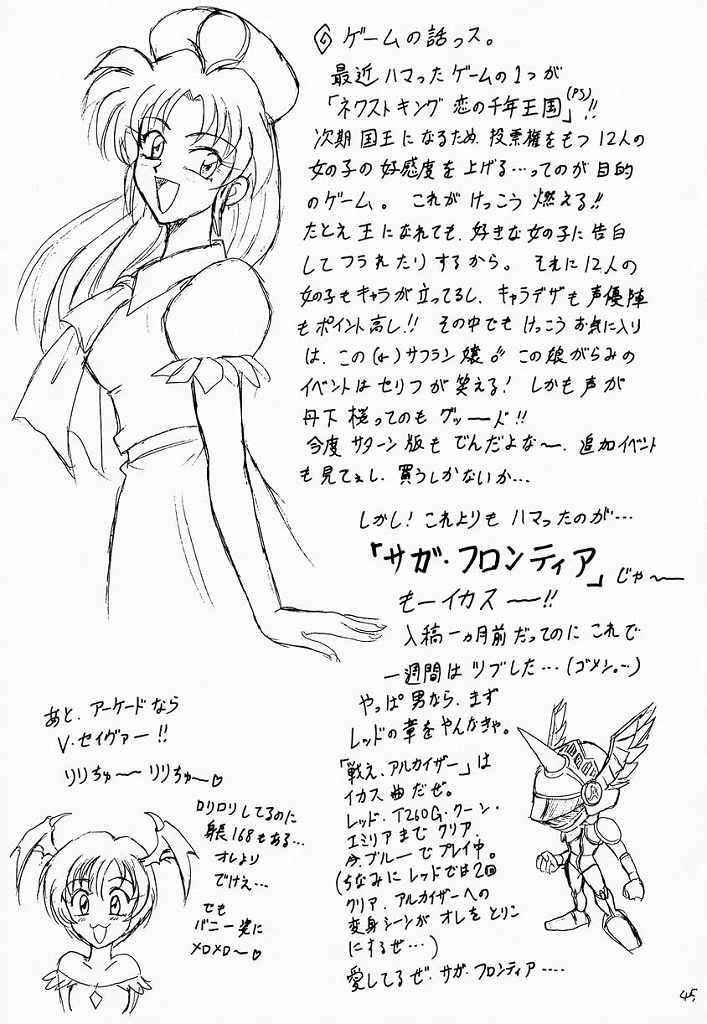 ゲームの話っス。
最近ハマったゲームの1つが
「ネクストキング 恋の千年王国」(PS)!!
次期国王になるため、投票権をもつ12人の
女の子の好感度を上げる…ってのが目的
のゲーム。 これがけっこう燃える!!
たとえ王になれても、好きな女の子に告白
してフラれたりするから。 それに12人の
女の子もキャラが立ってるし、キャラデザも声優陣
もポイント高し!! その中でもけっこうお気に入り
は、この(←)サフラン嬢。 この娘がらみの
イベントはセリフが笑える! しかも声が
丹下桜ってのもグッーード!!
今度サターン版もでんだよな〜、追加イベント
も見てぇし、買うしかないか…
しかし! これよりもハマったのが…
「サガ・フロンティア」じゃ〜
もーイカス〜!!
入稿一ヵ月前だってのにこれで
一週間はツブした…(ゴメン。…)
やっぱ男なら、まず
レッドの章をやんなきゃ。
「戦え、アルカイザー」は
イカス曲だぜ。
レッド・T260G・クーン・
エミリアまでクリア、
今、ブルーでプレイ中。
(ちなみにレッドでは2回
クリア、アルカイザーへの
変身シーンがオレをとりこ
にするぜ…)
愛してるぜ、サガ・フロンティア‥‥
あと、アーケードなら
V.セイヴァー!!
リリちゅ〜 リリちゅ〜♡
ロリロリしてるのに
身長168もある…
オレより
でけえ…
でも
バニー姿に
メロメロ〜♡
45.